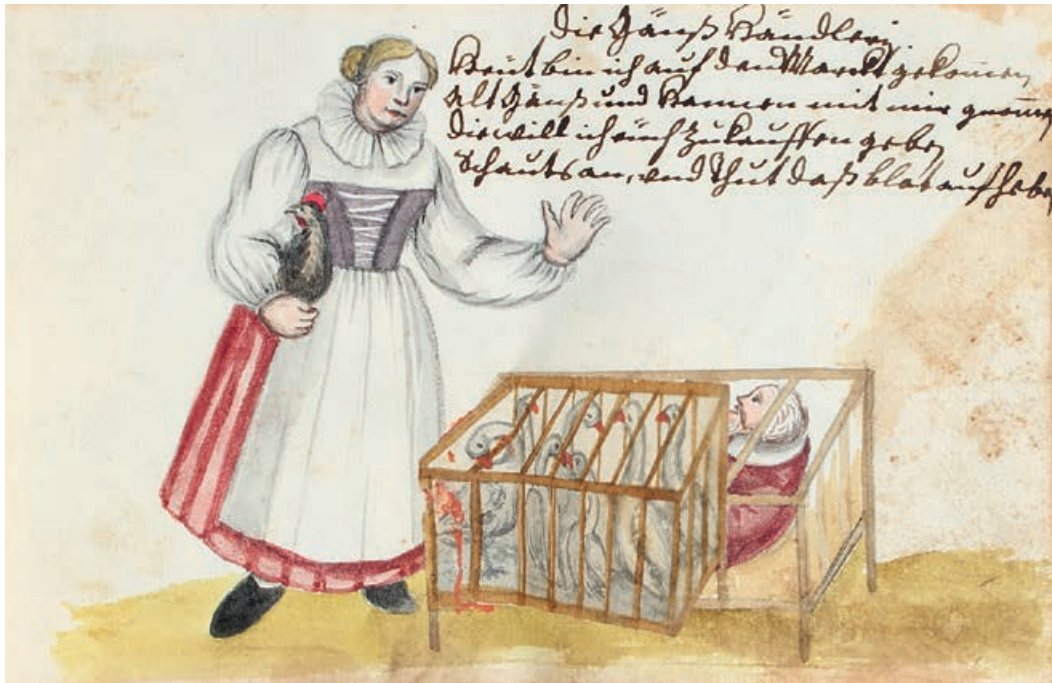 Die Gänß Händlerin
Heut bin ich auf den Marckt gekomen,
Alt Gänß und Hennen mit mir genomen
Die will ich eüch zukauffen geben
Schauts an, und Thut daß blat aufheben